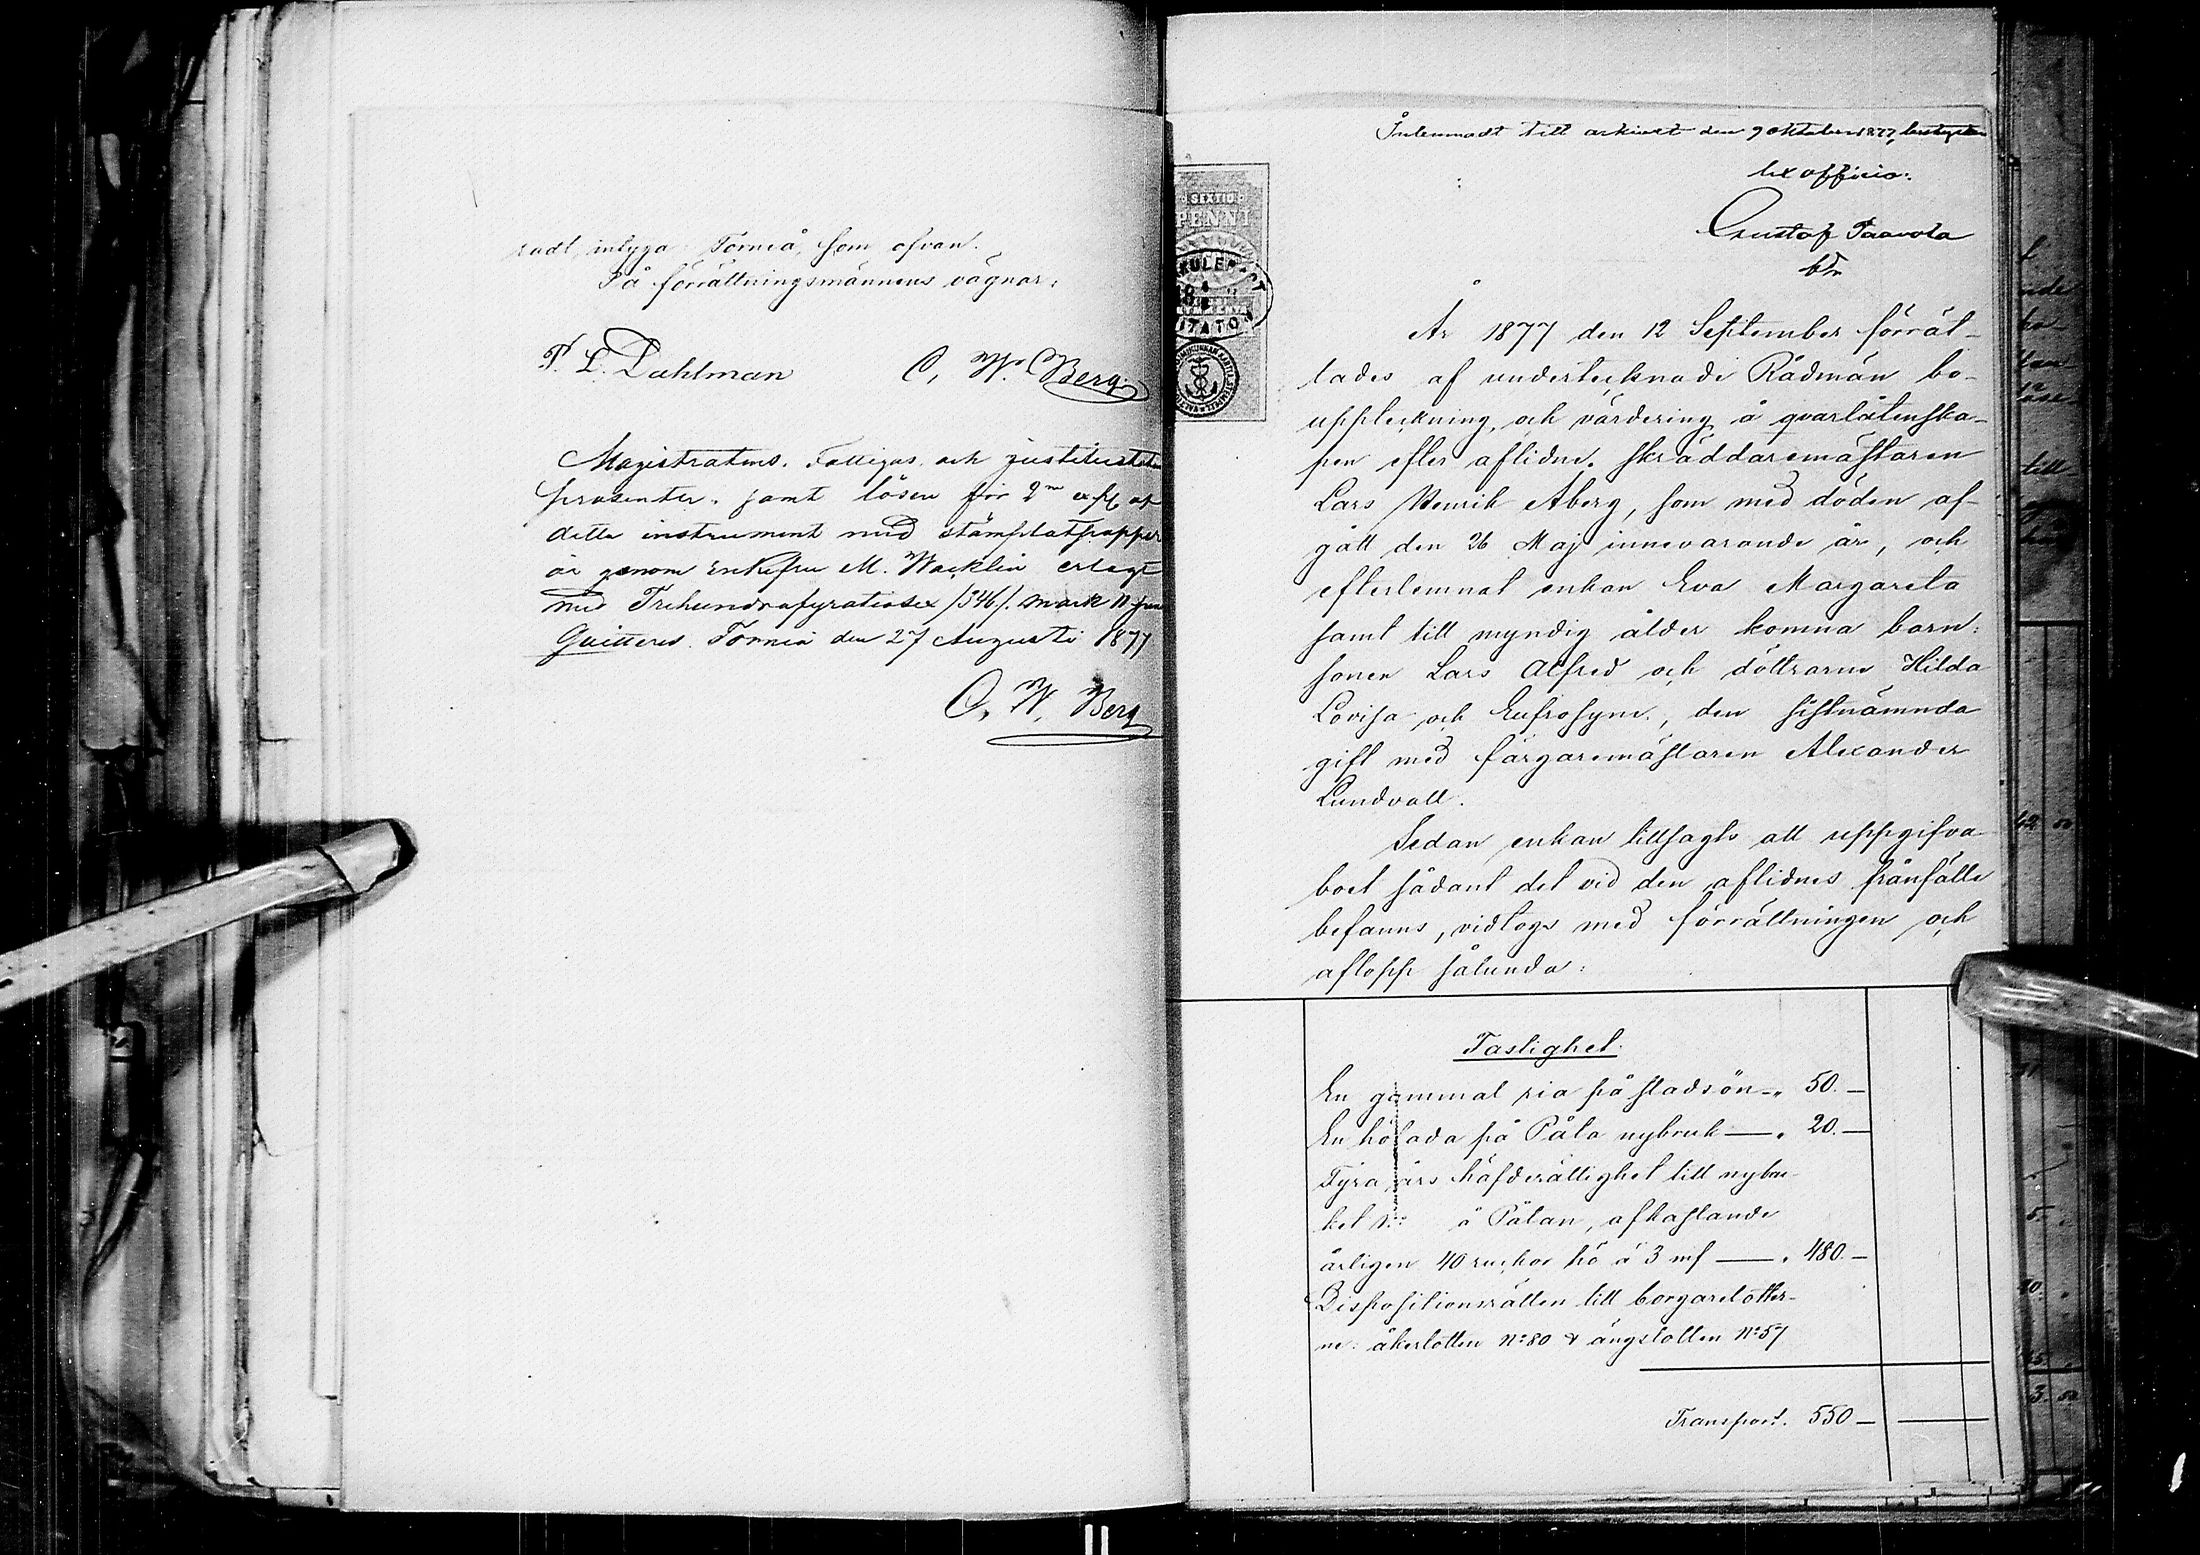 radt, intyga Torneå, som ofvan.
På förrättningsmännens vägnar:
P. L. Dahlman C. W. Berg
Magistratens, Fattigas och justitiestats
prosenter, samt lösen för 2ne expl af
detta instrument med stämplatpapper
är genom Enkefru M. Wacklin erlagt
med Trehundrafyratiosex /346/ mark 11 pen
Quitteras. Torneå den 27 Augusti 1877
C. W. Berg
Inlemnadt till arkivet den 9 oktober 1877, bestyrker
Ex officio:
Gustaf Paavola
SEXTIO
PENNI
År 1877 den 12 September förrät-
tades af undertecknade Rådmän bo-
uppteckning och värdering å qvarlåtenska-
pen efter aflidne skräddaremästaren
Lars Henrik Åberg, som med döden af-
gått den 26 Maj innevarande år, och
efterlemnat enkan Eva Margareta
samt till myndig ålder komna barn:
sonen Lars Alfred och döttrarne Hilda
Lovisa och Eufrosyne, den sistnämnda
gift med färgaremästaren Alexander
Lundvall.
Sedan enkan tillsagts att uppgifva
boet sådant det vid den aflidnes frånfälle
befanns, vidtogs med förrättningen och
aflopp sålunda:
Fastighet.
En gammal ria på stadsön -„ 50.-
En hölada på Påla nybruk — „ 20.-
Fyra års häfderättighet till nybru-
ket å Pålan, afkastande
årligen 40 ruckor hö á 3 mf — „ 480.-
Dispositionsrätten till borgarelotter-
ne: åkerlotten No 80 & ängslotten No 57
Transport. 550 —